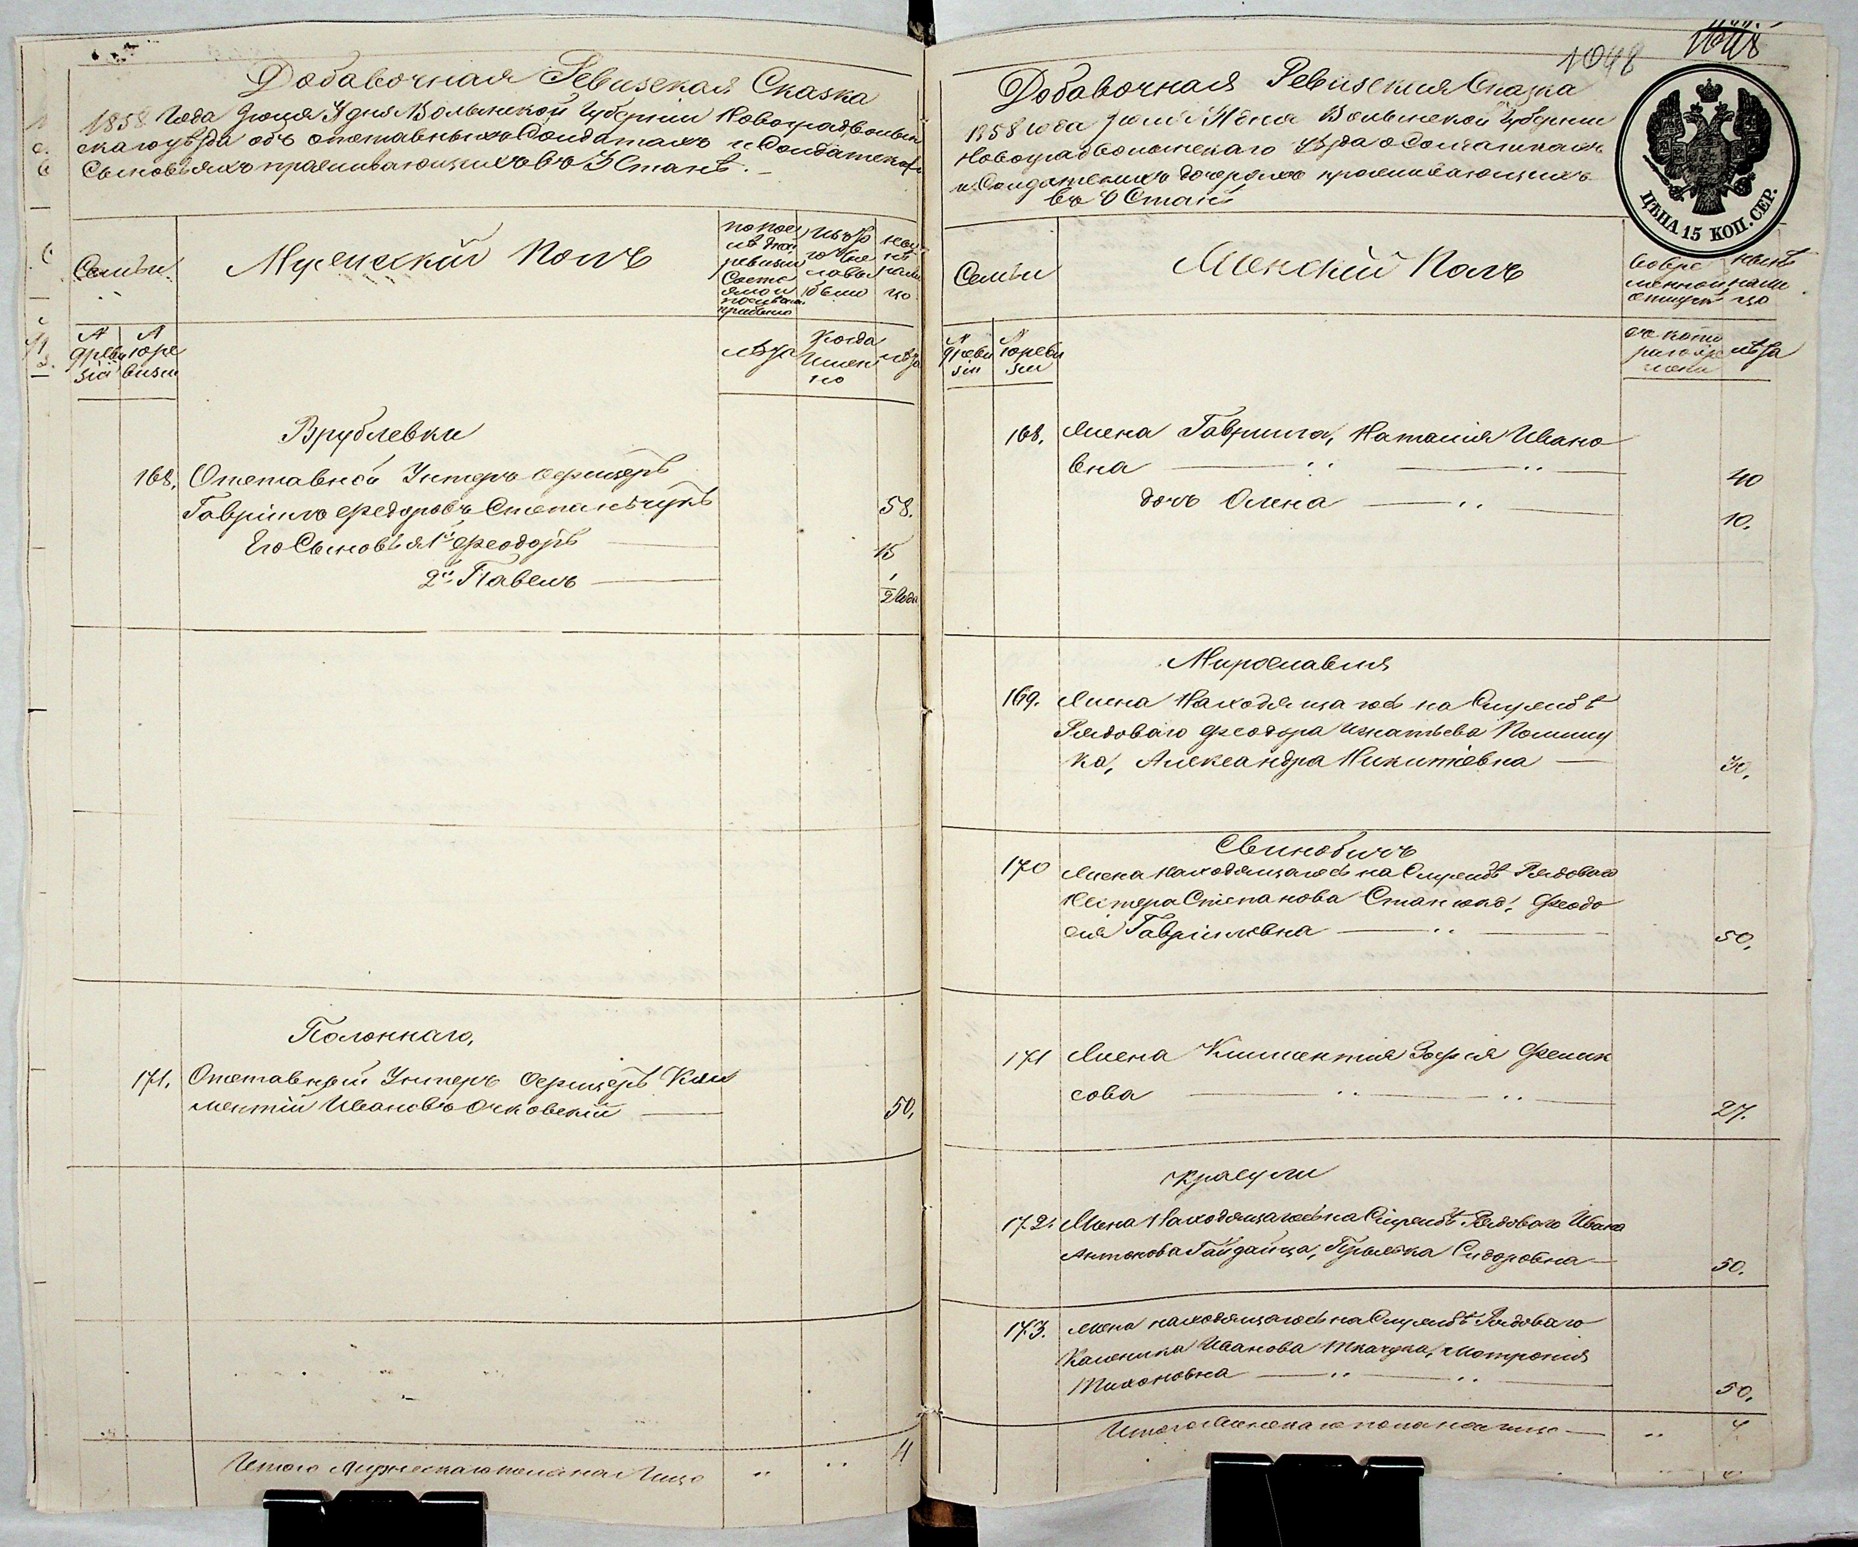 Добавочная Ревизская Сказка
1858 Года Июля 1 дня Волынской Губерніи Новоградволын
скаго уѣзда объ отставныхъ Солдатахъ и Солдатскихъ
Сыновьяхъ проживающихъ въ 3 Станѣ.
Семьи
Мужескій Полъ
по пос
лѣдней
ревизіи
состо
яло и
послѣ
прибыло
изъ
того
числа
выбыло
ны
нѣ
на ли
цо
№
№
древи
зіи
юре
визіи
лѣта
Когда
имен
но
лѣта
Врублевки
168. Отставной Унтеръ офицеръ
Гавріилъ Федоровъ Степанчукъ 58.
Его Сыновья 1й Феодоръ 15
2й Павелъ 1/2 года
Полоннаго,
171. Отставный Унтеръ офицеръ Кли
ментій Ивановъ Очковскій 50,
Итого мужескаго пола на лицо " " 4
1048
Добавочная Ревизская Сказка
1858 года Июля 1 дня Волынской Губерніи
Новоградволынскаго уѣзда о Солдаткахъ
и Солдатскихъ дочеряхъ проживающихъ
въ 3 Станѣ
ЦѢНА 15 КОП. СЕР.
Семьи
Женскій Полъ
во вре
менной
отлучкѣ
нынѣ
на ли
цо
№
№
древи
зіи
юреви
зіи
съ кото
раго вре
мени
лѣта
168. Жена Гавриила, Наталія Ивано
вна " " 40
дочь Олена " 10.
Мирославля
169. Жена Находящагося на Службѣ
Рядоваго Феодора Игнатьева
ка, Александра Никитіевна 30,
170 Жена находящагося на Службѣ Рядоваго
Нестера Степанова Станюка, Феодо
сія Гавріиловна " 50,
171 Жена Климентія Зофія Фелик
сова " " 27.
Красули
172. Жена Находящагося на Службѣ Рядоваго Ивана
Антонова Гайдайца, Сидоровна 50.
173. Жена находящагося на Службѣ Рядоваго
Каленика Иванова Ткачука, Мотрония
Тихоновна " " 50,
Итого женскаго пола на лицо "